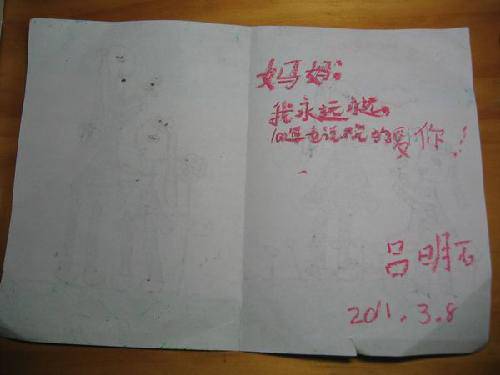 妈妈:
我永远永远,
也说不完的爱你!
吕明石
2011.3.8